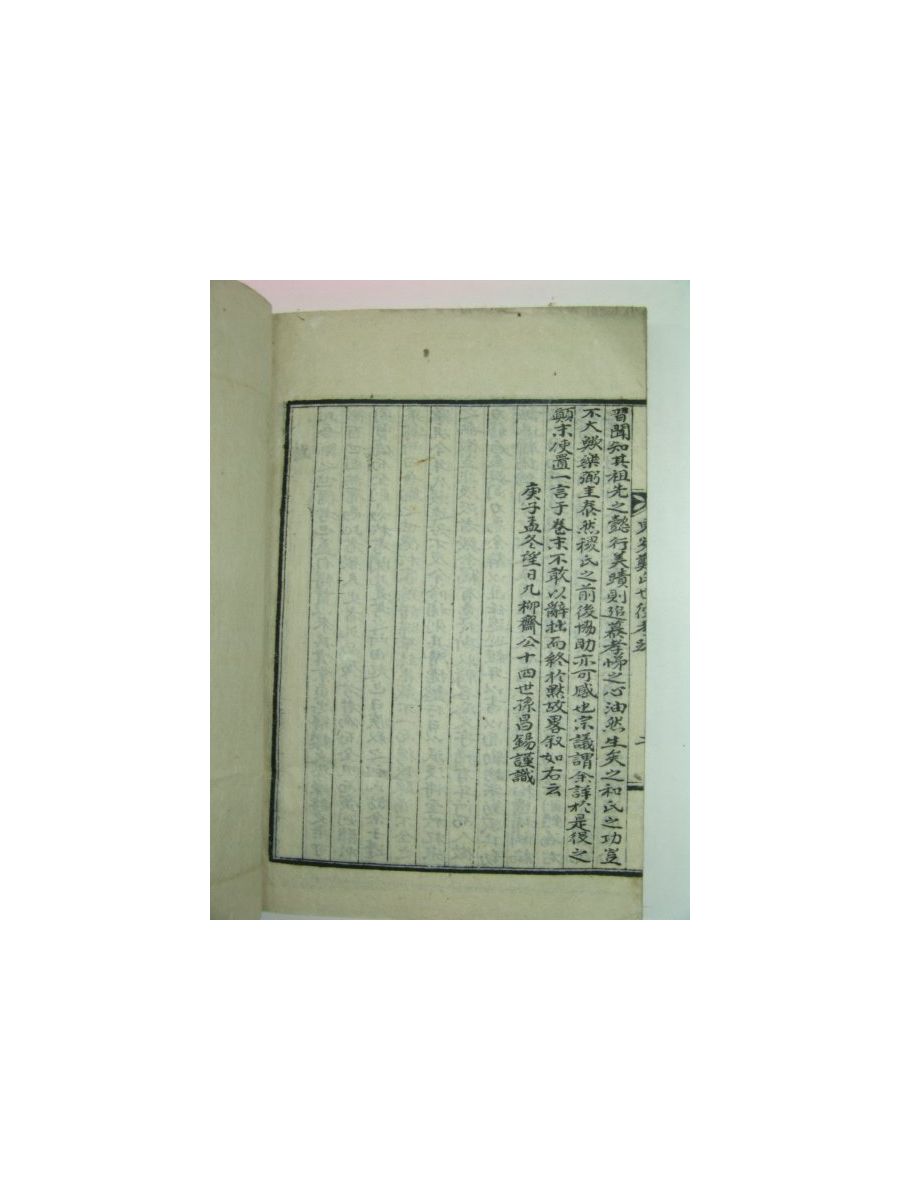 習聞知其祖先之懿行美蹟則追慕孝悌之心油然生矣之和氏之功豈
不大歟樂弼圭泰然稷氏之前後協助亦可感也宗議謂余詳於是役之
顚末使置一言于卷末不敢以辭拙而終於黙故畧叙如右云
庚子孟冬望日九柳齋公十四世孫昌錫謹識
鄭氏世
二